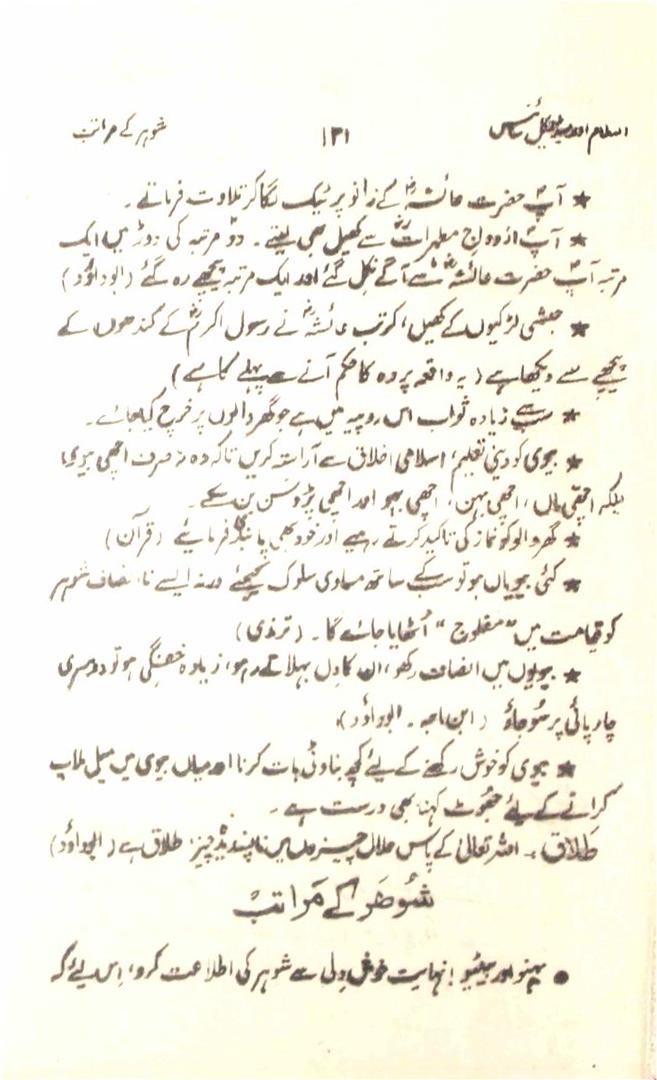 اسلام اور میڈیکل سائنس ۱۳۱ شوہر کے مراتب
★ آپؐ حضرت عائشہؓ کے زانو پر ٹیک لگا کر تلاوت فرماتے۔
★ آپؐ ازدواجِ مطہراتؓ سے کھیل بھی لیتے۔ دو مرتبہ کی دوڑ میں ایک
مرتبہ آپؐ حضرت عائشہؓ سے آگے نکل گئے اور ایک مرتبہ پیچھے رہ گئے (ابوداؤد)
★ حبشی لڑکیوں کے کھیل، کرتب عائشہؓ نے رسول اکرمؐ کے کندھوں کے
پیچھے سے دیکھا ہے (یہ واقعہ پردہ کا حکم آنے سے پہلے کا ہے)
★ سب سے زیادہ ثواب اس روپیہ میں ہے جو گھر والوں پر خرچ کیا جائے۔
★ بیوی کو دینی تعلیم، اسلامی اخلاق سے آراستہ کریں تاکہ وہ نہ صرف اچھی بیوی
بلکہ اچھی ماں، اچھی بہن، اچھی بہو اور اچھی پڑوسن بن سکے۔
★ گھر والو کو نماز کی تاکید کرتے رہیے اور خود بھی پابندی فرمائیے (قرآن)
★ کئی بیویاں ہو تو سب کے ساتھ مساوی سلوک کیجئے ورنہ ایسے ناانصاف شوہر
کو قیامت میں "مفلوج" اُٹھایا جائے گا۔ (ترمذی)
★ بیویوں میں انصاف رکھو، ان کا دِل بہلاتے رہو، زیادہ خفگی ہو تو دوسری
چارپائی پر سُو جاؤ (ابن ماجہ۔ ابوداؤد)
★ بیوی کو خوش رکھنے کے لیئے کچھ بناوٹی بات کرنا اور میاں بیوی میں میل ملاپ
کرانے کے لیئے جھوٹ کہنا بھی درست ہے۔
طلاق :۔ اللہ تعالیٰ کے پاس حلال چیزوں میں ناپسندیدہ چیز، طلاق ہے (ابوداؤد)
شوھَر کے مَراتبْ
● بہنو اور بیٹیو! نہایت خوش دِلی سے شوہر کی اطلاعت کرو، اِس لیئے کہ